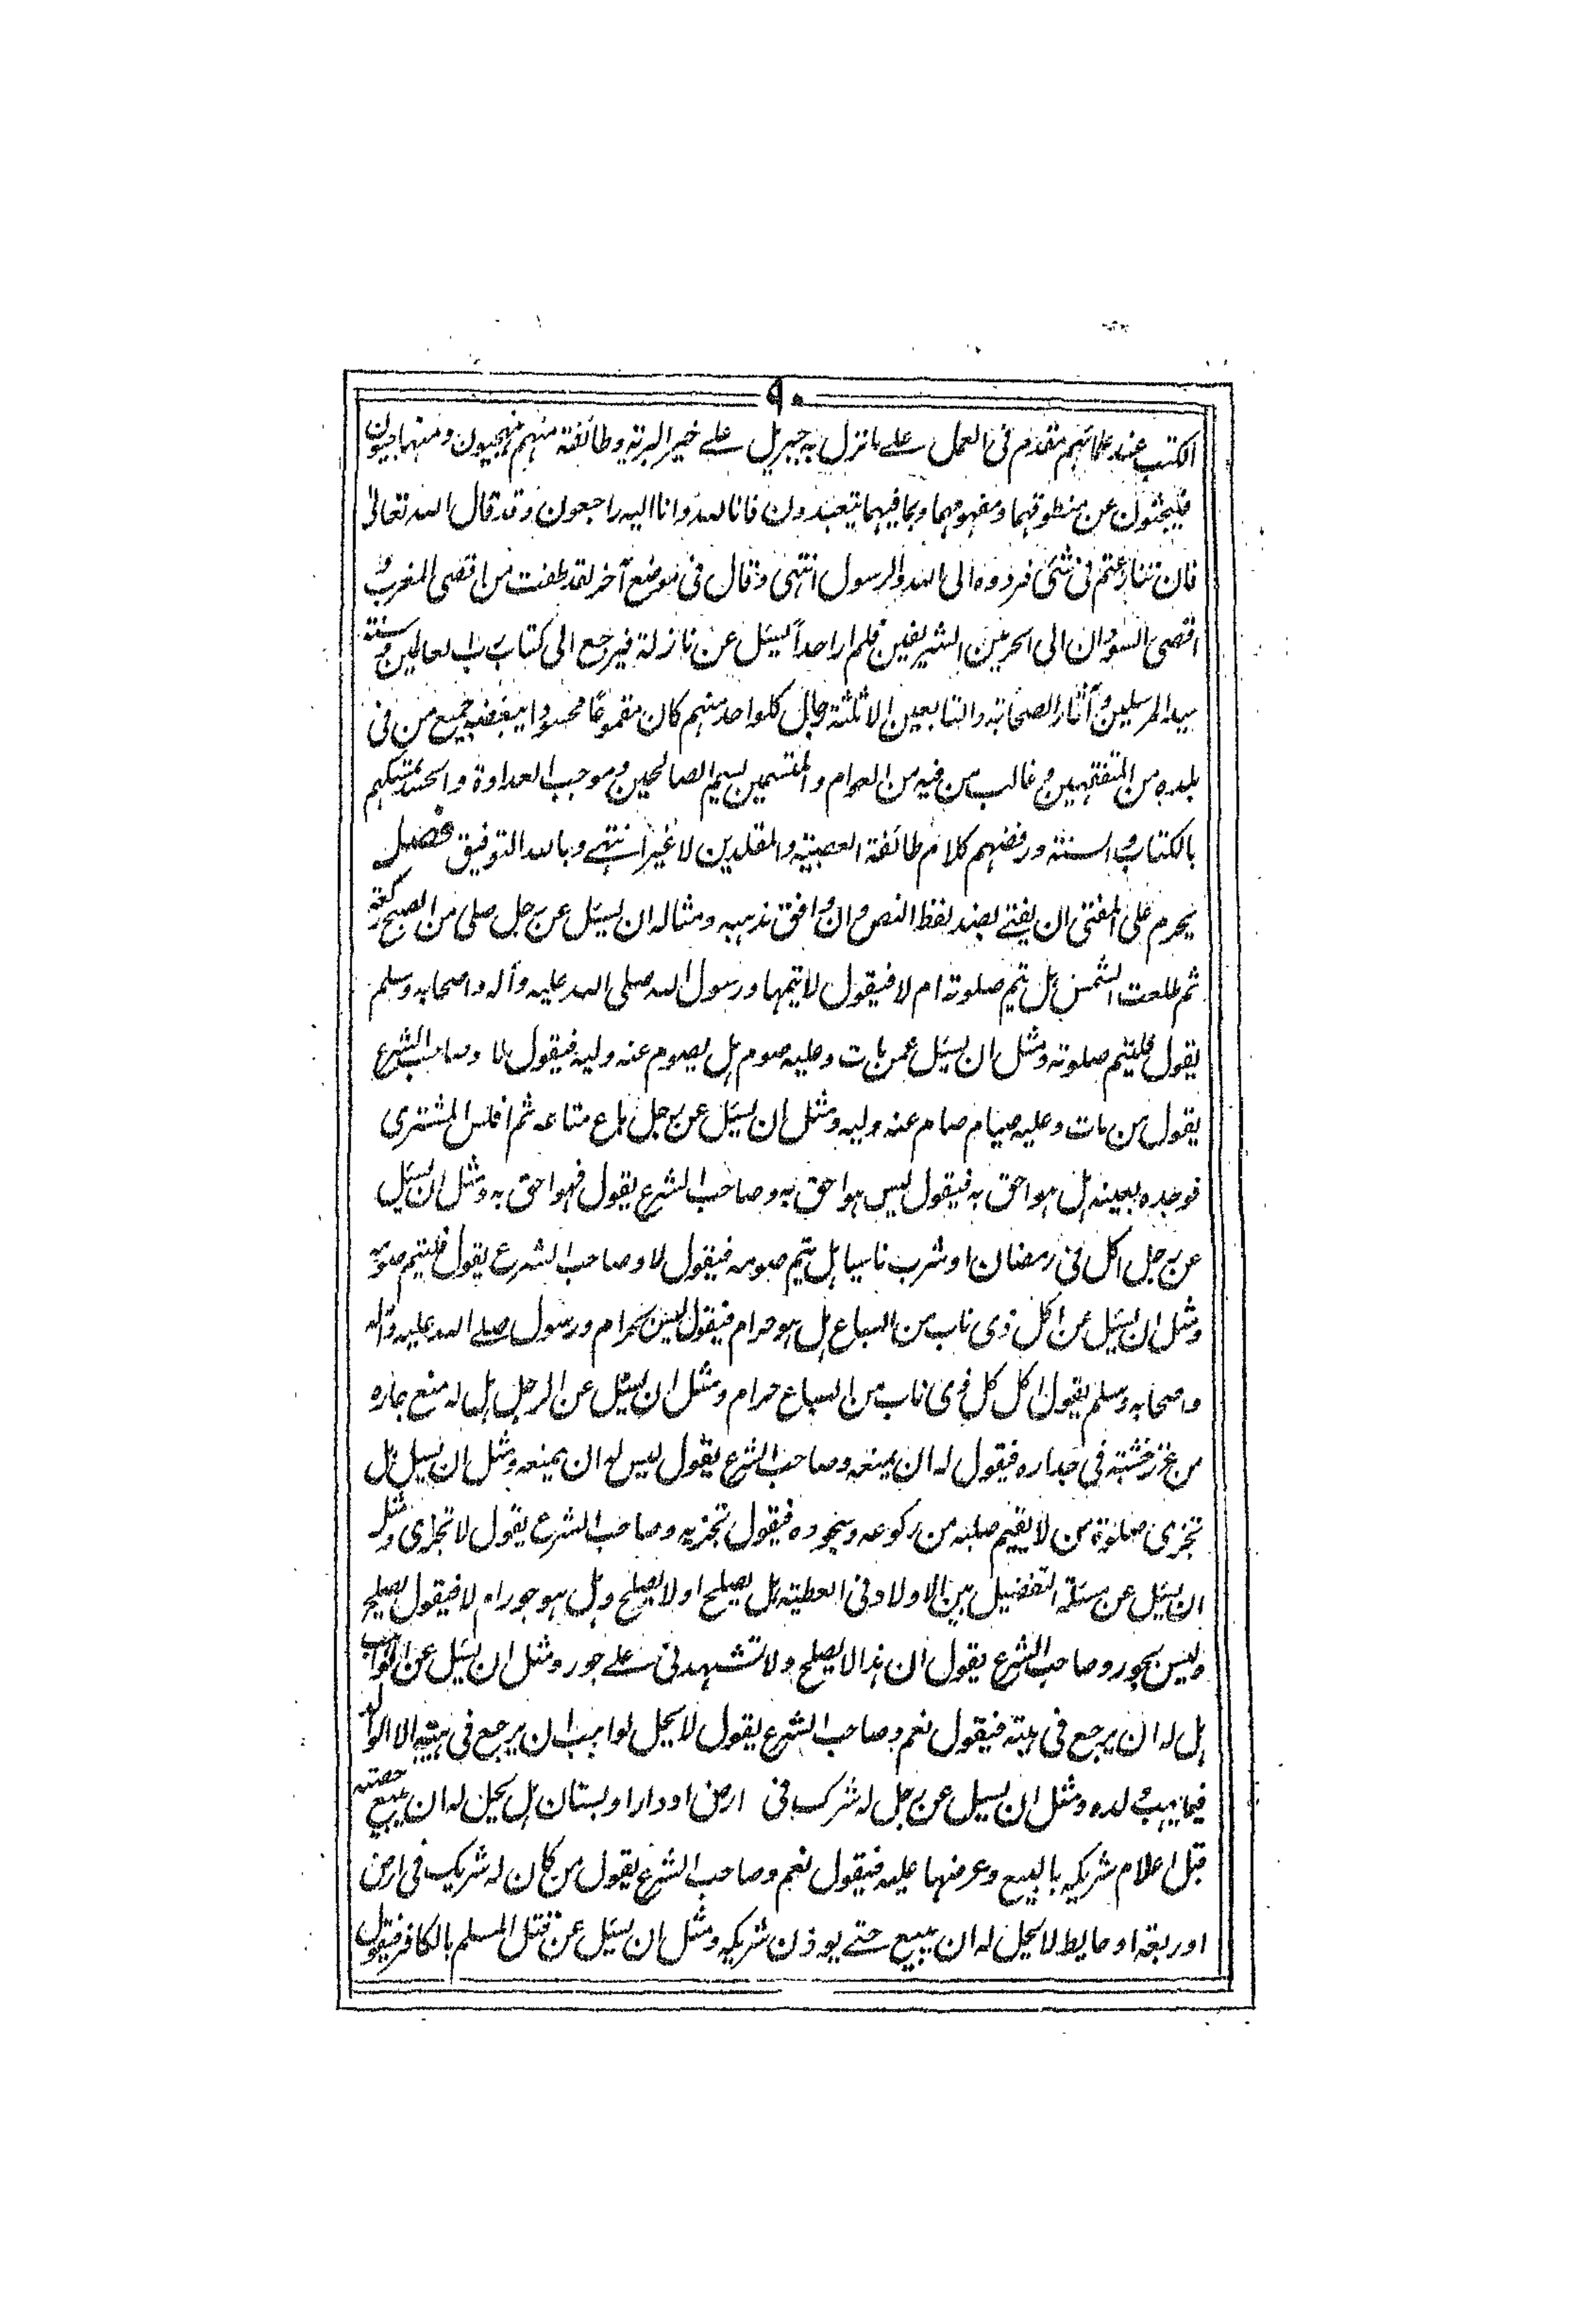 ٩٠
الكتب عند علمائهم مقدم فى العمل على ما نزل به جبريل على خير البرية وطائفة منهم منهجيون ومنهاجيون
فيبحثون عن منطوقهما ومفهومهما وبما فيهما يتعبدون فانا لله وانا اليه راجعون وقد قال الله تعالى
فان تنازعتم فى شئ فردوه الى الله والرسول انتهى وقال فى موضع آخر لقد طفت من اقصى المغرب و
اقصى السودان الى الحرمين الشريفين فلم ار احداً يسئل عن نازلة فيرجع الى كتاب رب العالمين وسنة
سيد المرسلين وآثار الصحابة والتابعين الا ثلثة رجال كلواحد منهم كان مقموعًا محسودا يبغضه جميع من فى
بلده من المتفقهين وغالب من فيه من العوام والمتسمين بسيم الصالحين وموجب العداوة والحسد تمسكهم
بالكتاب والسنة ورفضهم كلام طائفة العصبية والمقلدين لا غير انتهى وبالله التوفيق فصل
يحرم على المفتى ان يفتے بضد لفظ النص وان وافق مذهبه ومثاله ان يسئل عن رجل صلى من الصبح ركعة
ثم طلعت الشمس هل يتم صلوته ام لا فيقول لا يتمها ورسول الله صلى الله عليه وآله واصحابه وسلم
يقول فليتم صلوته ومثل ان يسئل عمن مات وعليه صوم هل يصوم عنه وليه فيقول لا وصاحب الشرع
يقول من مات وعليه صيام صام عنه وليه ومثل ان يسئل عن رجل باع متاعه ثم افلس المشترى
فوجده بعينه هل هو احق به فيقول ليس هو احق به وصاحب الشرع يقول فهو احق به ومثل ان يسئل
عن رجل اكل فى رمضان او شرب ناسيا هل يتم صومه فيقول لا وصاحب الشرع يقول فليتم صومه
ومثل ان يسئل عن اكل ذى ناب من السباع هل هو حرام فيقول ليس بحرام ورسول صلے الله عليه وآله
واصحابه وسلم يقول اكل كل ذى ناب من السباع حرام ومثل ان يسئل عن الرجل هل له منع جاره
من غرز خشبة فى جداره فيقول له ان يمنعه وصاحب الشرع يقول ليس له ان يمنعه ومثل ان يسئل هل
تجزى صلوة من لا يقيم صلبه من ركوعه وسجوده فيقول تجزيه وصاحب الشرع يقول لا تجزى ومثل
ان يسئل عن مسئلة التفضيل بين الاولاد فى العطية هل يصلح او لا يصلح وهل هو جور ام لا فيقول يصلح
وليس بجور وصاحب الشرع يقول ان هذا لا يصلح ولا تشهدنى على جور ومثل ان يسئل عن الواهب
هل له ان يرجع فى هبته فيقول نعم وصاحب الشرع يقول لا يحل لواهب ان يرجع فى هبته الا الوالد
فيما يهب لولده ومثل ان يسئل عن رجل له شرك فى ارض او دار او بستان هل يحل له ان يبيع حصته
قبل اعلام شريكه بالبيع وعرضها عليه فيقول نعم وصاحب الشرع يقول من كان له شريك فى ارض
او ربعة او حايط لا يحل له ان يبيع حتے يوذن شريكه ومثل ان يسئل عن قتل المسلم بالكافر فيقول